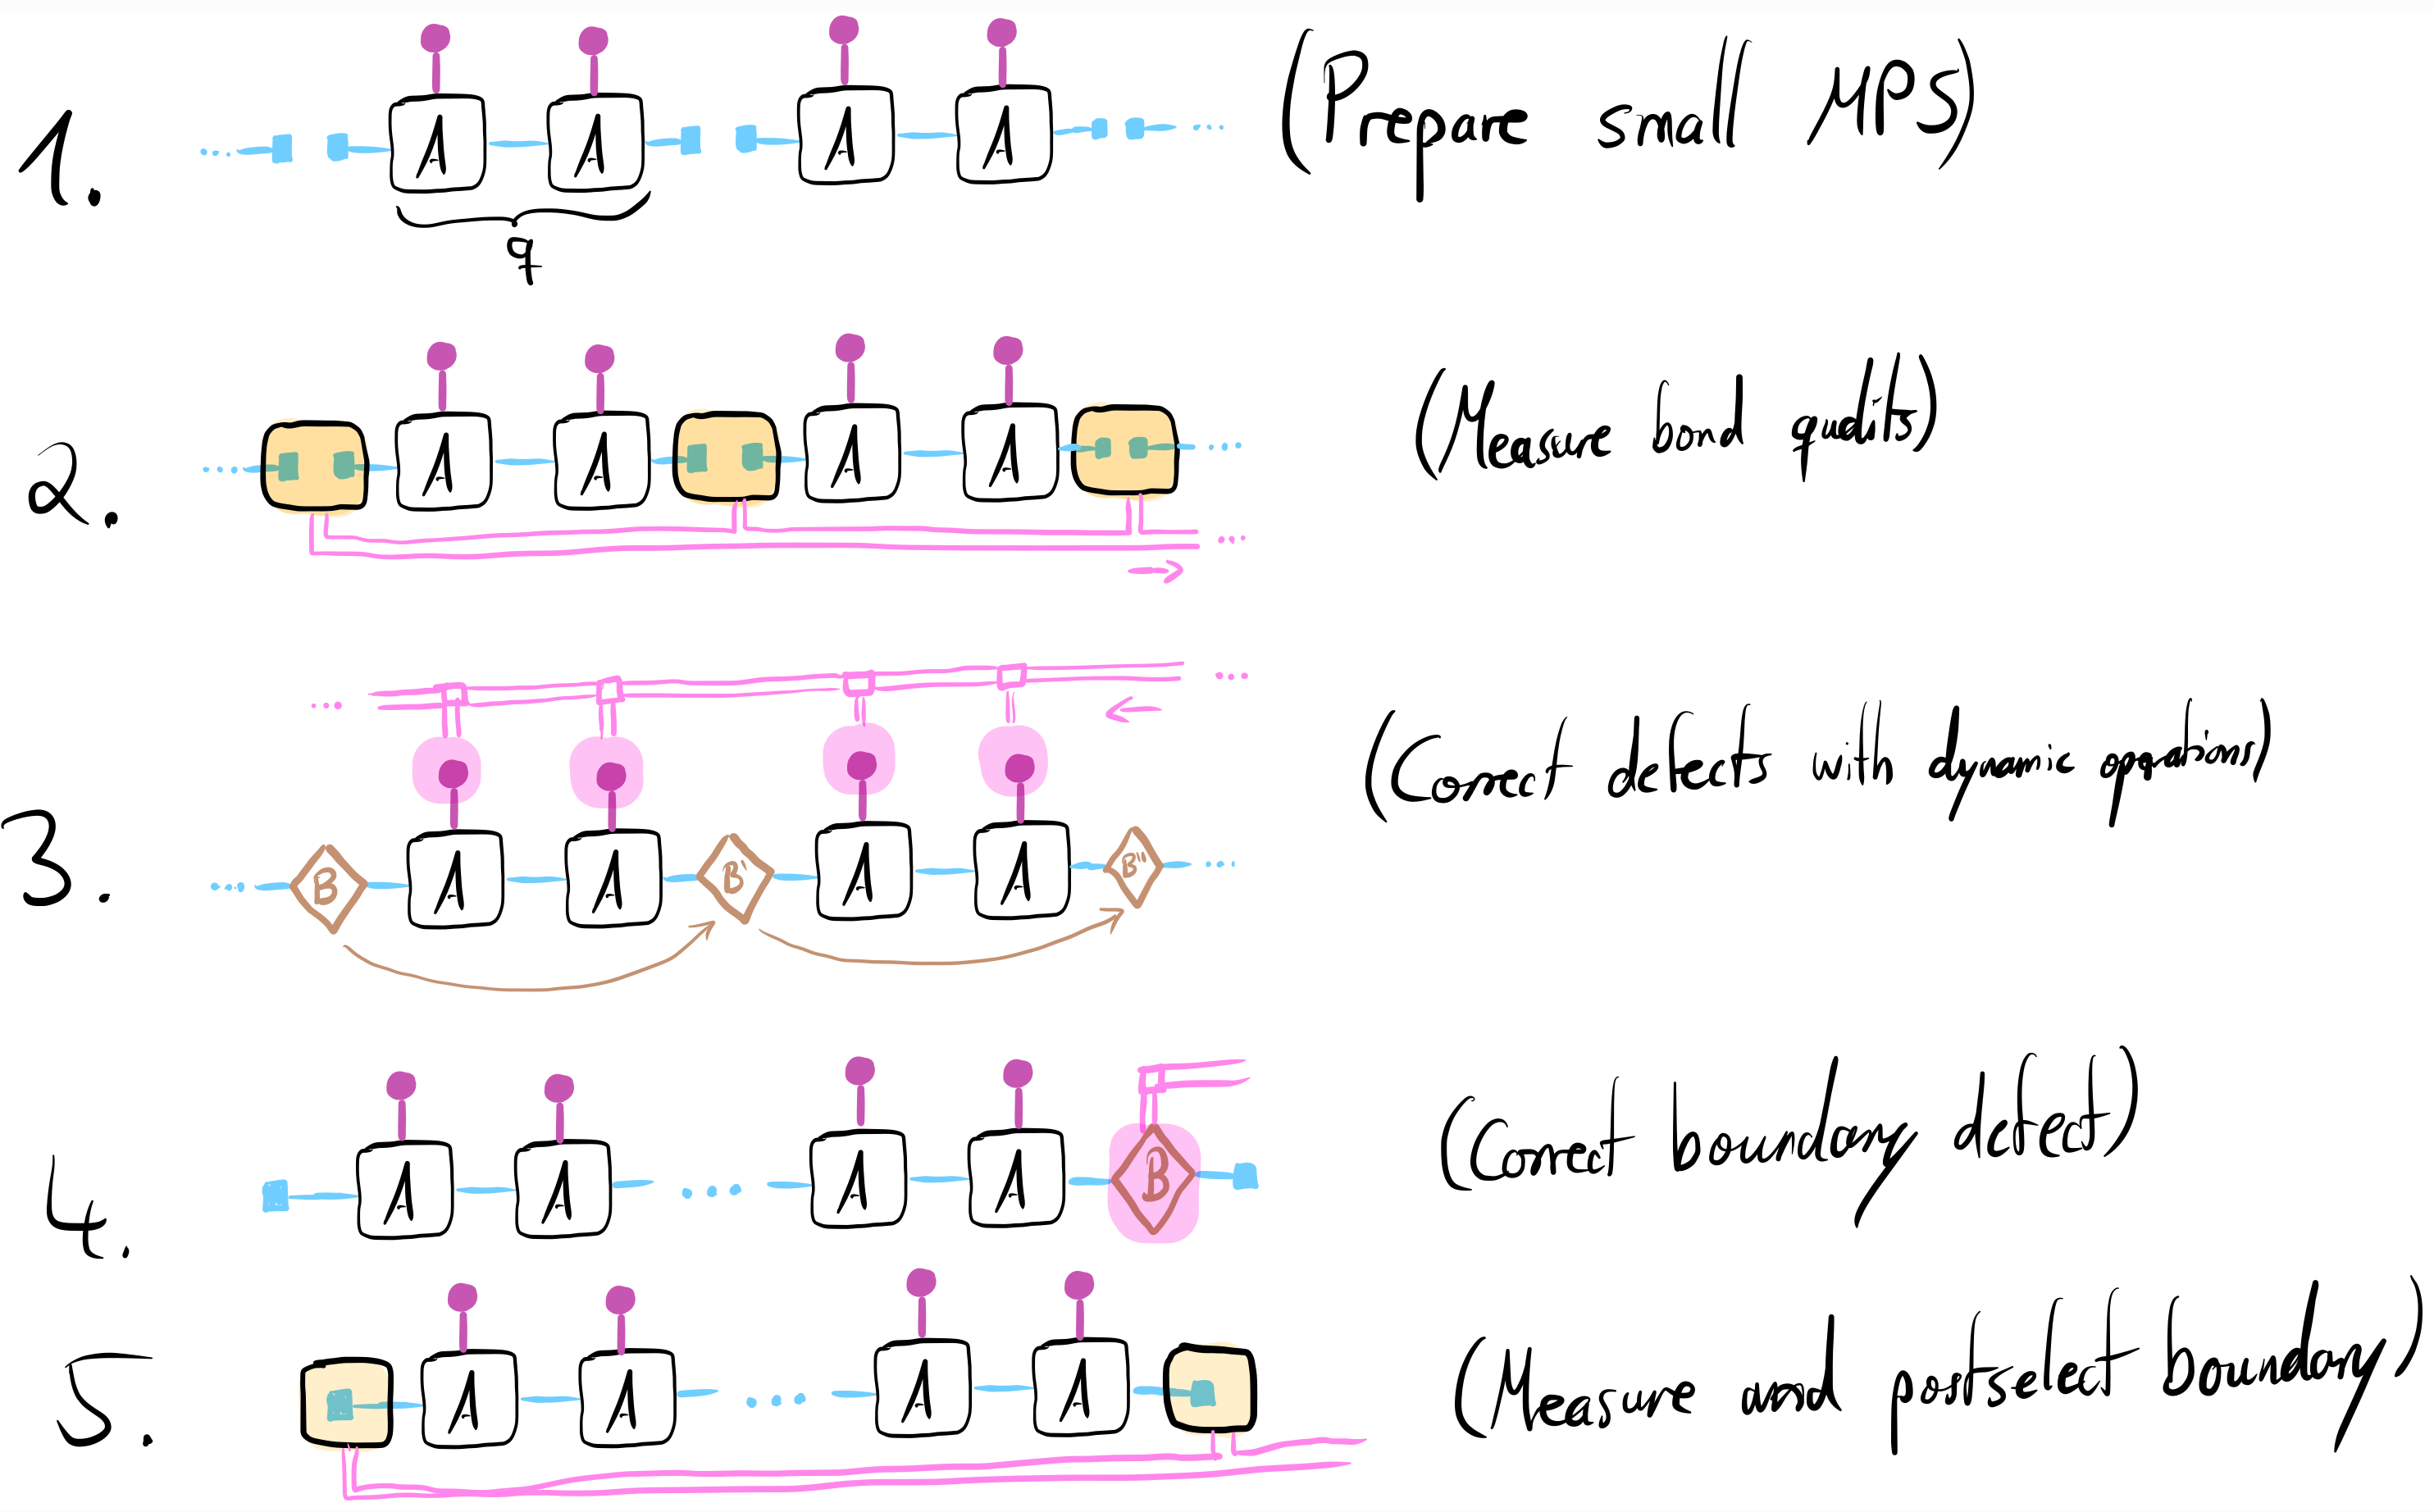 1. A A A A (Prepare small MPS)
q
2. A A A A (Measure bond qudits)
3. B A A B' A A B'' (Correct defects with dynamic operations)
4. A A ... A A B (Correct boundary defect)
5. A A ... A A (Measure and postselect boundary)